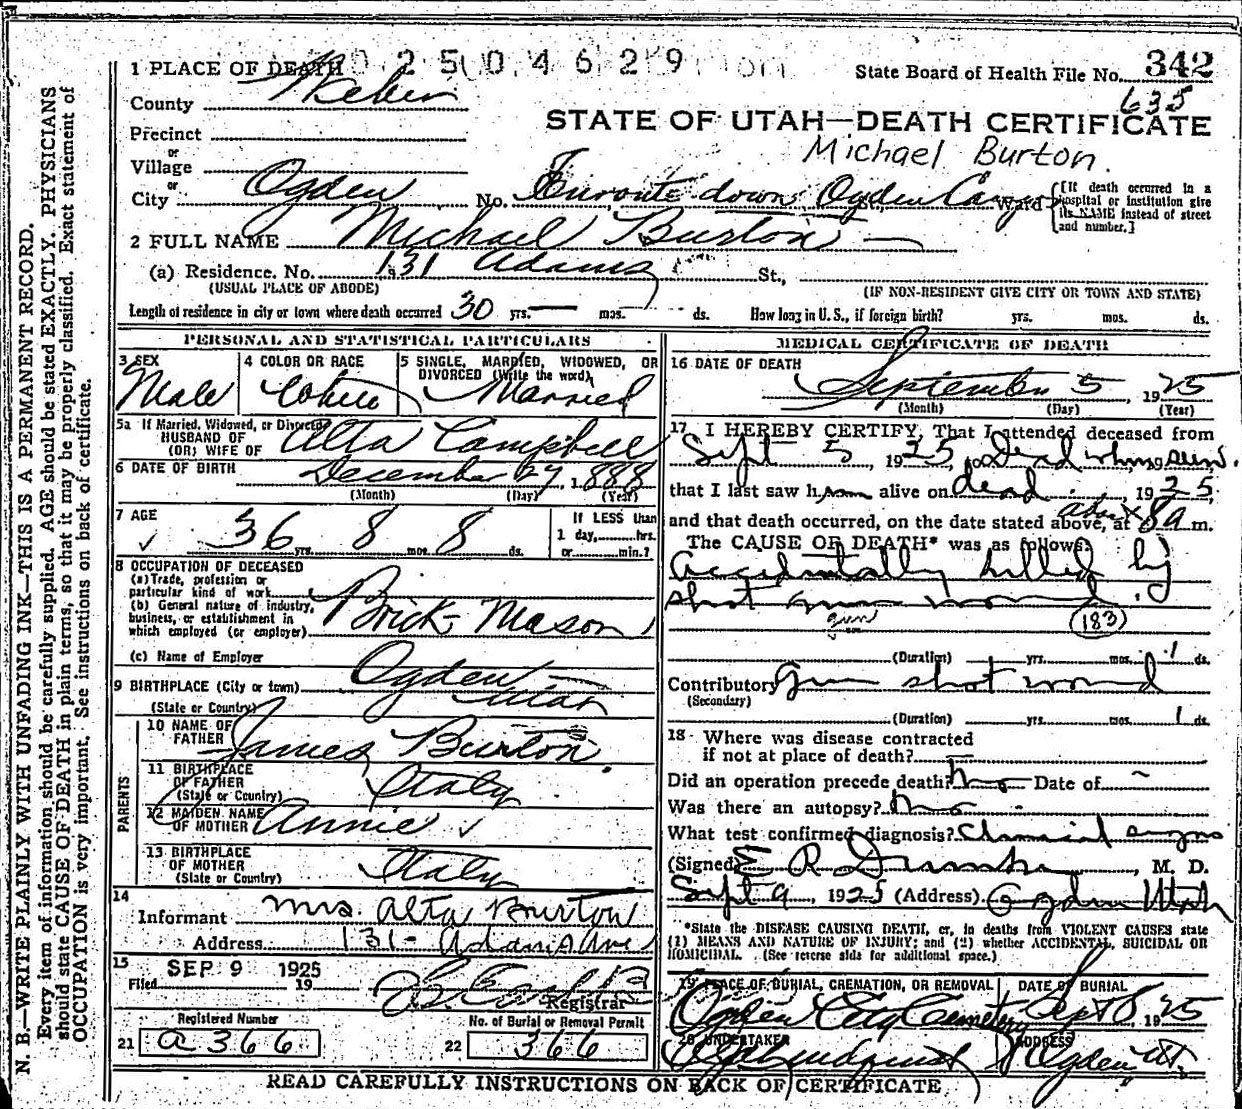 1 PLACE OF DEATH 0 2 5 0 4 6 2 9
State Board of Health File No. 342
635
County Weber
STATE OF UTAH—DEATH CERTIFICATE
Michael Burton
Precinct
or
Village
or
City Ogden No. Enroute down Ogden Canyon Ward
[If death occurred in a hospital or institution give its NAME instead of street and number.]
2 FULL NAME Michael Burton
(a) Residence. No. 131 Adams St.,
(USUAL PLACE OF ABODE) (IF NON-RESIDENT GIVE CITY OR TOWN AND STATE)
Length of residence in city or town where death occurred 30 yrs. — mos. ds. How long in U. S., if foreign birth? yrs. mos. ds.
PERSONAL AND STATISTICAL PARTICULARS
3 SEX
Male
4 COLOR OR RACE
White
5 SINGLE, MARRIED, WIDOWED, OR
DIVORCED (Write the word)
Married
5a If Married, Widowed, or Divorced
HUSBAND OF
(OR) WIFE OF Alta Campbell
6 DATE OF BIRTH December 27, 1888
(Month) (Day) (Year)
7 AGE
✓ 36 yrs. 8 mos. 8 ds.
If LESS than
1 day,......hrs.
or......min.?
8 OCCUPATION OF DECEASED
(a) Trade, profession or
particular kind of work
(b) General nature of industry,
business, or establishment in
which employed (or employer) Brick Mason
(c) Name of Employer
9 BIRTHPLACE (City or town) Ogden
(State or Country) Utah
PARENTS
10 NAME OF
FATHER James Burton
11 BIRTHPLACE
OF FATHER
(State or Country) Italy
12 MAIDEN NAME
OF MOTHER Annie ✓
13 BIRTHPLACE
OF MOTHER
(State or Country) Italy
14
Informant Mrs. Alta Burton
Address 131- Adams Ave
15
Filed SEP 9 1925
19
Registrar
Registered Number
21 a 366
No. of Burial or Removal Permit
22 366
MEDICAL CERTIFICATE OF DEATH
16 DATE OF DEATH
September 5, 1925
(Month) (Day) (Year)
17 I HEREBY CERTIFY, That I attended deceased from
Sept 5, 1925, to Dead when seen.
that I last saw him alive on dead, 1925,
and that death occurred, on the date stated above, at about 8 a m.
The CAUSE OF DEATH* was as follows:
Accidentally killed by
shot gun wound.
gun (183)
(Duration) yrs. mos. 1 ds.
Contributory Gun shot wound
(Secondary)
(Duration) yrs. mos. 1 ds.
18 - Where was disease contracted
if not at place of death?
Did an operation precede death? no Date of ~
Was there an autopsy? no
What test confirmed diagnosis? Clinical signs
(Signed) E R Dumke, M. D.
Sept 9, 1925 (Address) Ogden Utah
*State the DISEASE CAUSING DEATH, or, in deaths from VIOLENT CAUSES state
(1) MEANS AND NATURE OF INJURY; and (2) whether ACCIDENTAL, SUICIDAL OR
HOMICIDAL. (See reverse side for additional space.)
19 PLACE OF BURIAL, CREMATION, OR REMOVAL
Ogden City Cemetery
DATE OF BURIAL
Sept 8, 1925
20 UNDERTAKER
ADDRESS
Ogden Ut.
READ CAREFULLY INSTRUCTIONS ON BACK OF CERTIFICATE
N. B.—WRITE PLAINLY WITH UNFADING INK—THIS IS A PERMANENT RECORD.
Every item of information should be carefully supplied. AGE should be stated EXACTLY. PHYSICIANS
should state CAUSE OF DEATH in plain terms, so that it may be properly classified. Exact statement of
OCCUPATION is very important. See instructions on back of certificate.